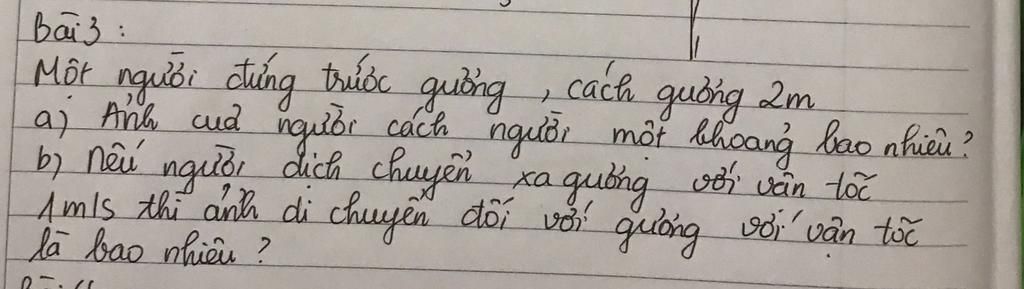 Bài 3 :
Một người đứng trước gương , cách gương 2m
a) Ảnh của người cách người một khoảng bao nhiêu ?
b) Nếu người dịch chuyển xa gương với vận tốc
1m/s thì ảnh di chuyển đối với gương với vận tốc
là bao nhiêu ?